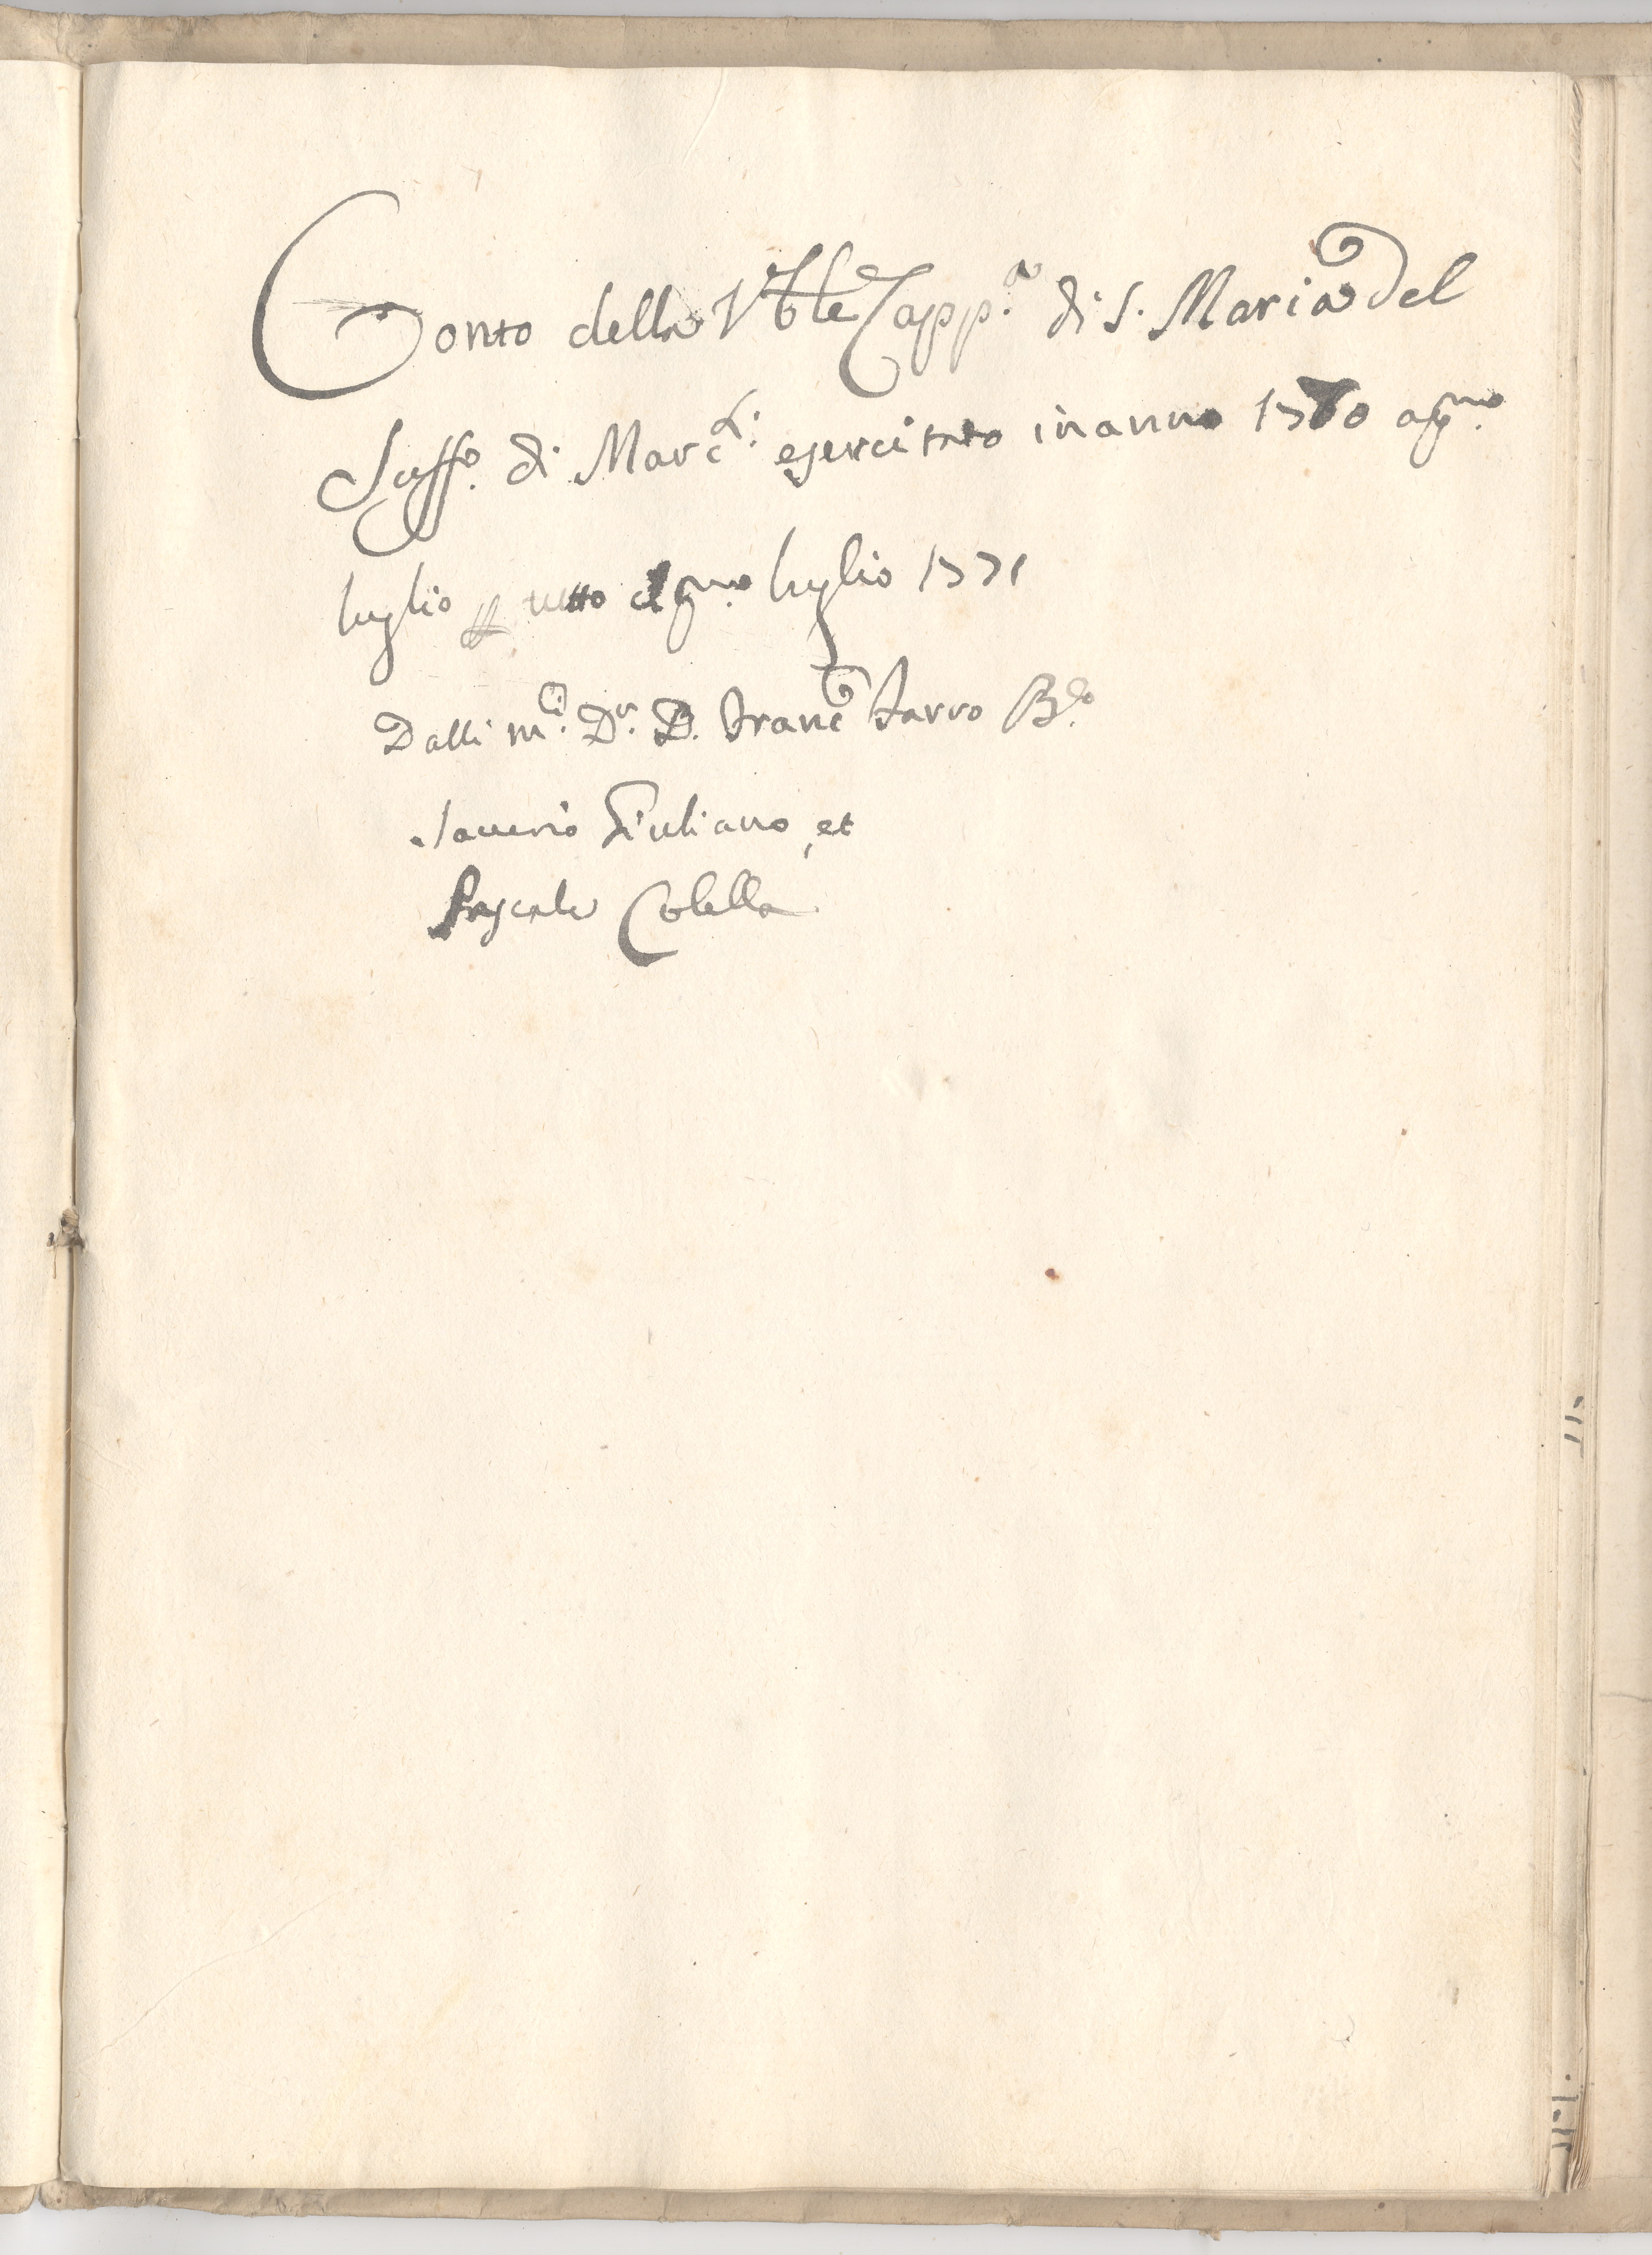 Conto della Vble Capp.a di S. Maria del
Suff.o di Marc.di esercitato in anno 1770 a pmo
luglio tutto pmo luglio 1771
Dalli m.ci Dr. D. Franc.o Farro
Saverio Giuliano, et
Pascale Colella